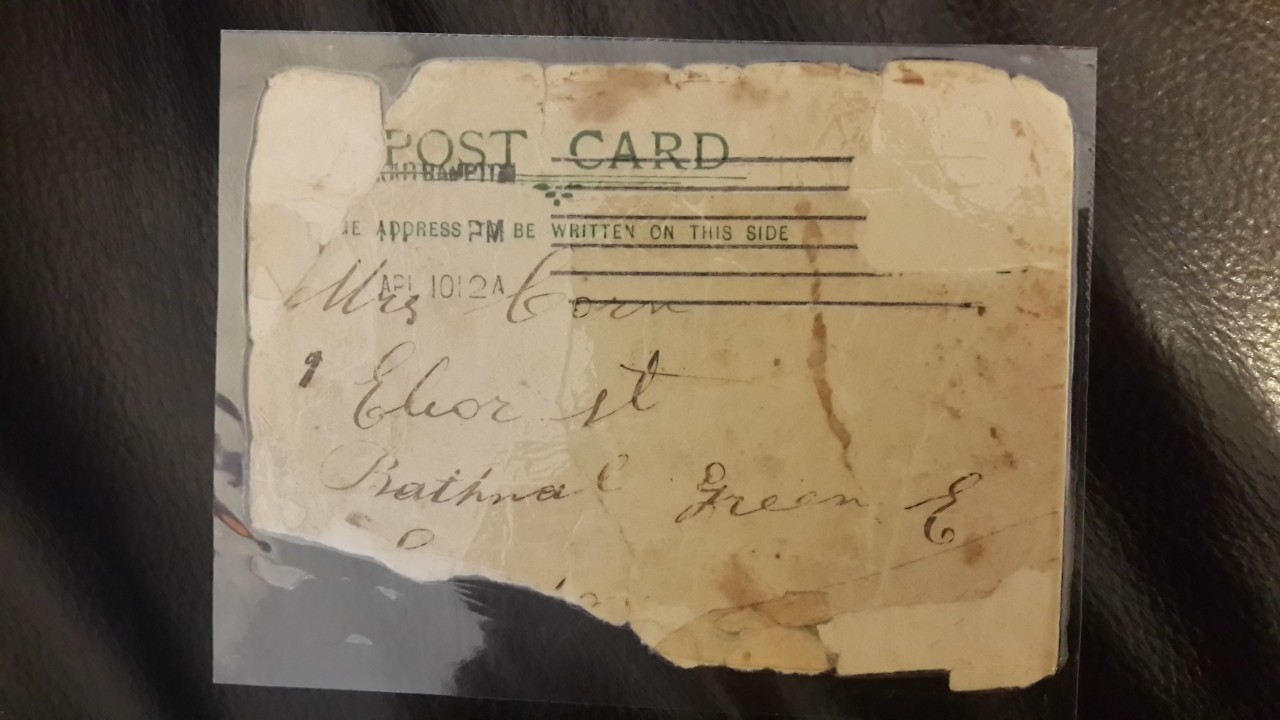 POST CARD
ADDRESS BE WRITTEN ON THIS SIDE
PM
AP 10 12A
Mrs Corn
9 Ebor st
Bathnal Green E